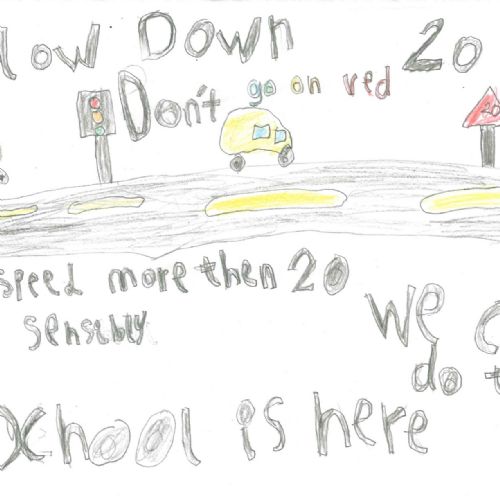 low Down 20
Don't go on red
20
speed more then 20
sensibly
We
do
School is here